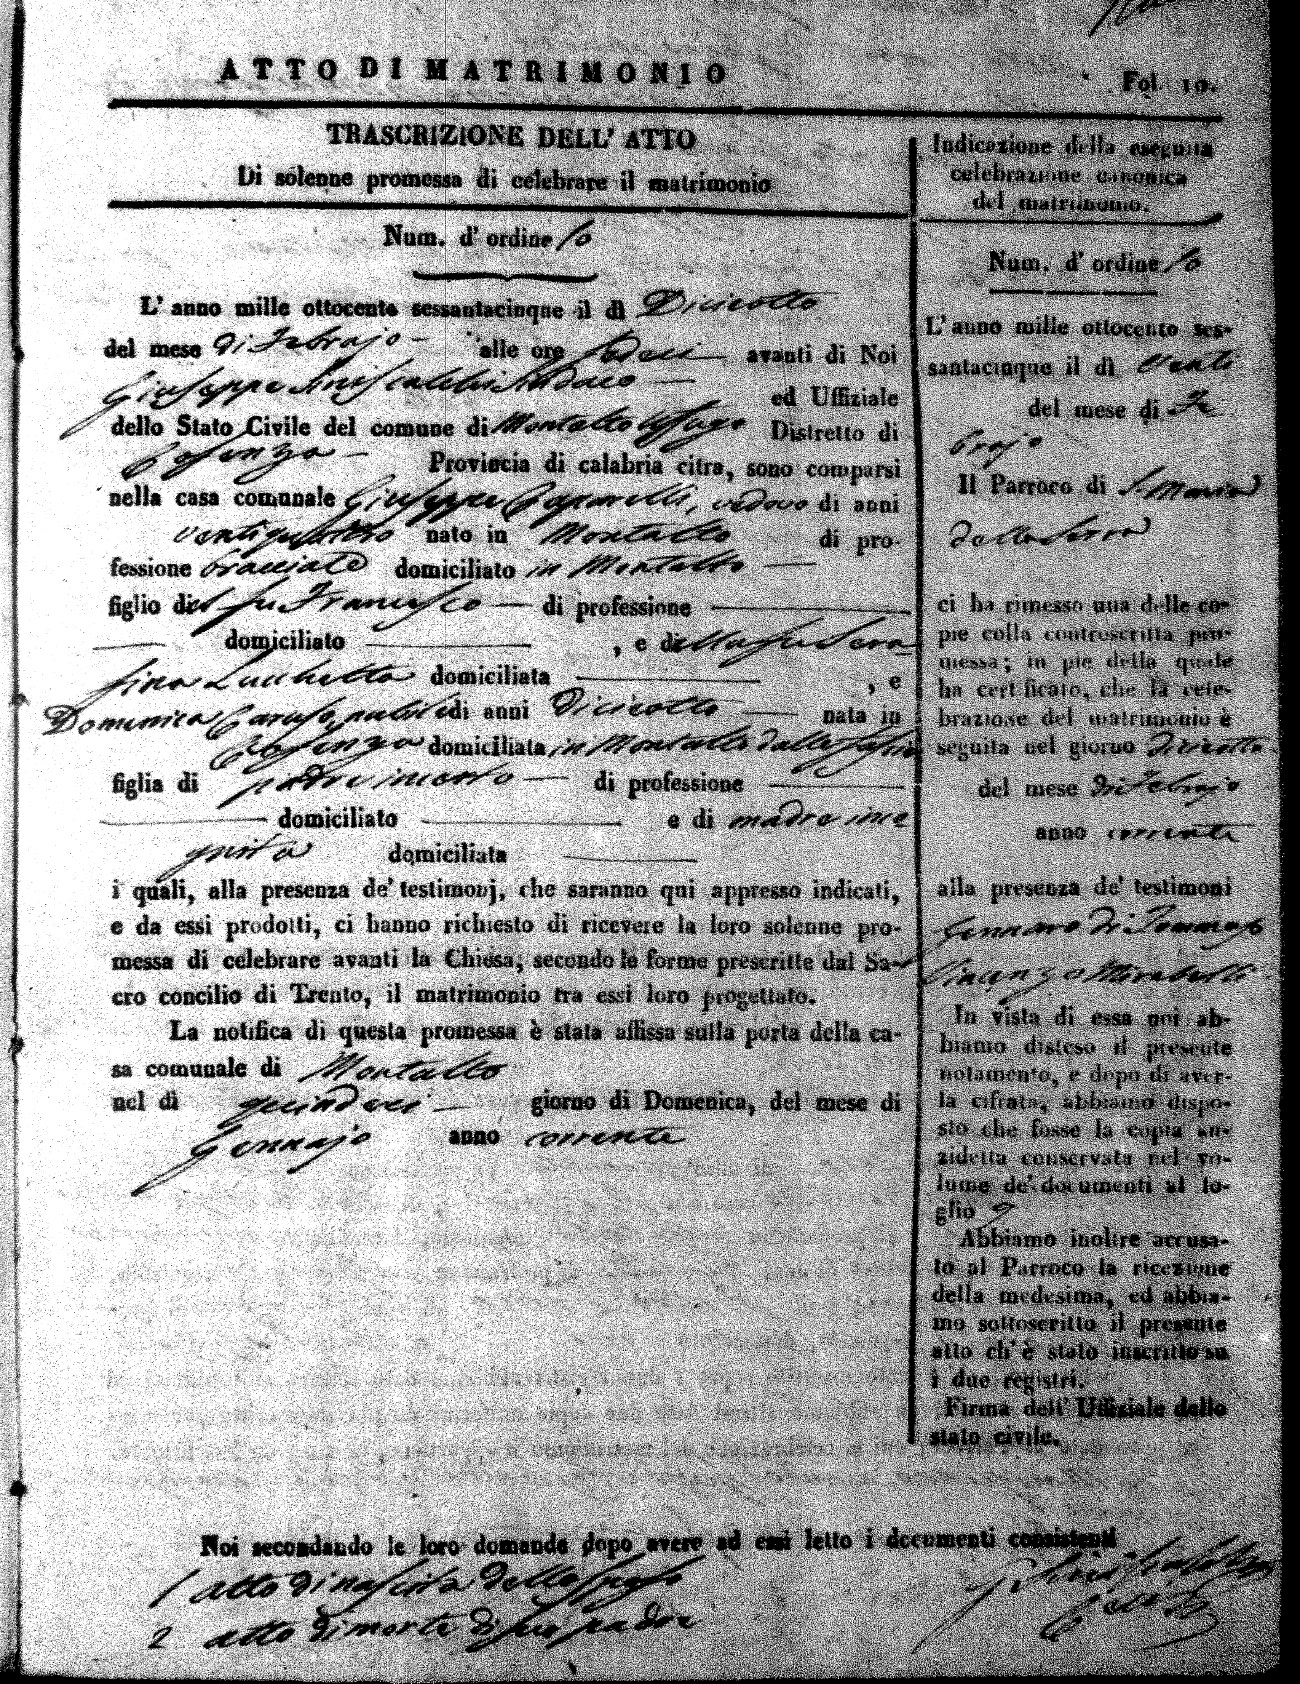 ATTO DI MATRIMONIO
Fol. 10.
TRASCRIZIONE DELL' ATTO
Di solenne promessa di celebrare il matrimonio
Num. d' ordine 10
L' anno mille ottocento sessantacinque il dì Diciotto
del mese di Febrajo - alle ore sedeci avanti di Noi
Giuseppe Siniscalchi Sindaco ed Uffiziale
dello Stato Civile del comune di Montalto Uffugo Distretto di
Cosenza - Provincia di calabria citra, sono comparsi
nella casa comunale Giuseppe vedovo di anni
ventiquattro nato in Montalto di pro-
fessione bracciale domiciliato in Montalto
figlio del fu Francesco di professione
domiciliato , e della fu Sera
fina Lucchetta domiciliata , e
Domenica Caruso nubile di anni Diciotto nata in
Cosenza domiciliata in Montalto dalle fascie
figlia di padre incerto di professione
domiciliato e di madre inc
gnita domiciliata
i quali, alla presenza de' testimonj, che saranno qui appresso indicati,
e da essi prodotti, ci hanno richiesto di ricevere la loro solenne pro-
messa di celebrare avanti la Chiesa, secondo le forme prescritte dal Sa-
cro concilio di Trento, il matrimonio tra essi loro progettato.
La notifica di questa promessa è stata affissa sulla porta della ca-
sa comunale di Montalto
nel dì quindeci giorno di Domenica, del mese di
Gennajo anno corrente
Noi secondando le loro domande dopo avere ad essi letto i documenti consistenti
1 atto di nascita dello sposo
2 atto di morte di suo padre
Indicazione della eseguita
celebrazione canonica
del matrimonio.
Num. d' ordine 10
L' anno mille ottocento ses-
santacinque il dì venti
del mese di Fe
brajo
Il Parroco di S. Maria
della Serra
ci ha rimesso una delle co-
pie colla controscritta pro-
messa; in piè della quale
ha certificato, che la cele-
brazione del matrimonio è
seguita nel giorno Diciotto
del mese di Febrajo
anno corrente
alla presenza de' testimoni
Gennaro di Tommaso
Vincenzo Mirabelli
In vista di essa noi ab-
biamo disteso il presente
notamento, e dopo di aver-
la cifrata, abbiamo dispo-
sto che fosse la copia an-
zidetta conservata nel vo-
lume de' documenti al fo-
glio
Abbiamo inoltre accusa-
to al Parroco la ricezione
della medesima, ed abbia-
mo sottoscritto il presente
atto ch' è stato inscritto su
i due registri.
Firma dell' Uffiziale dello
stato civile.